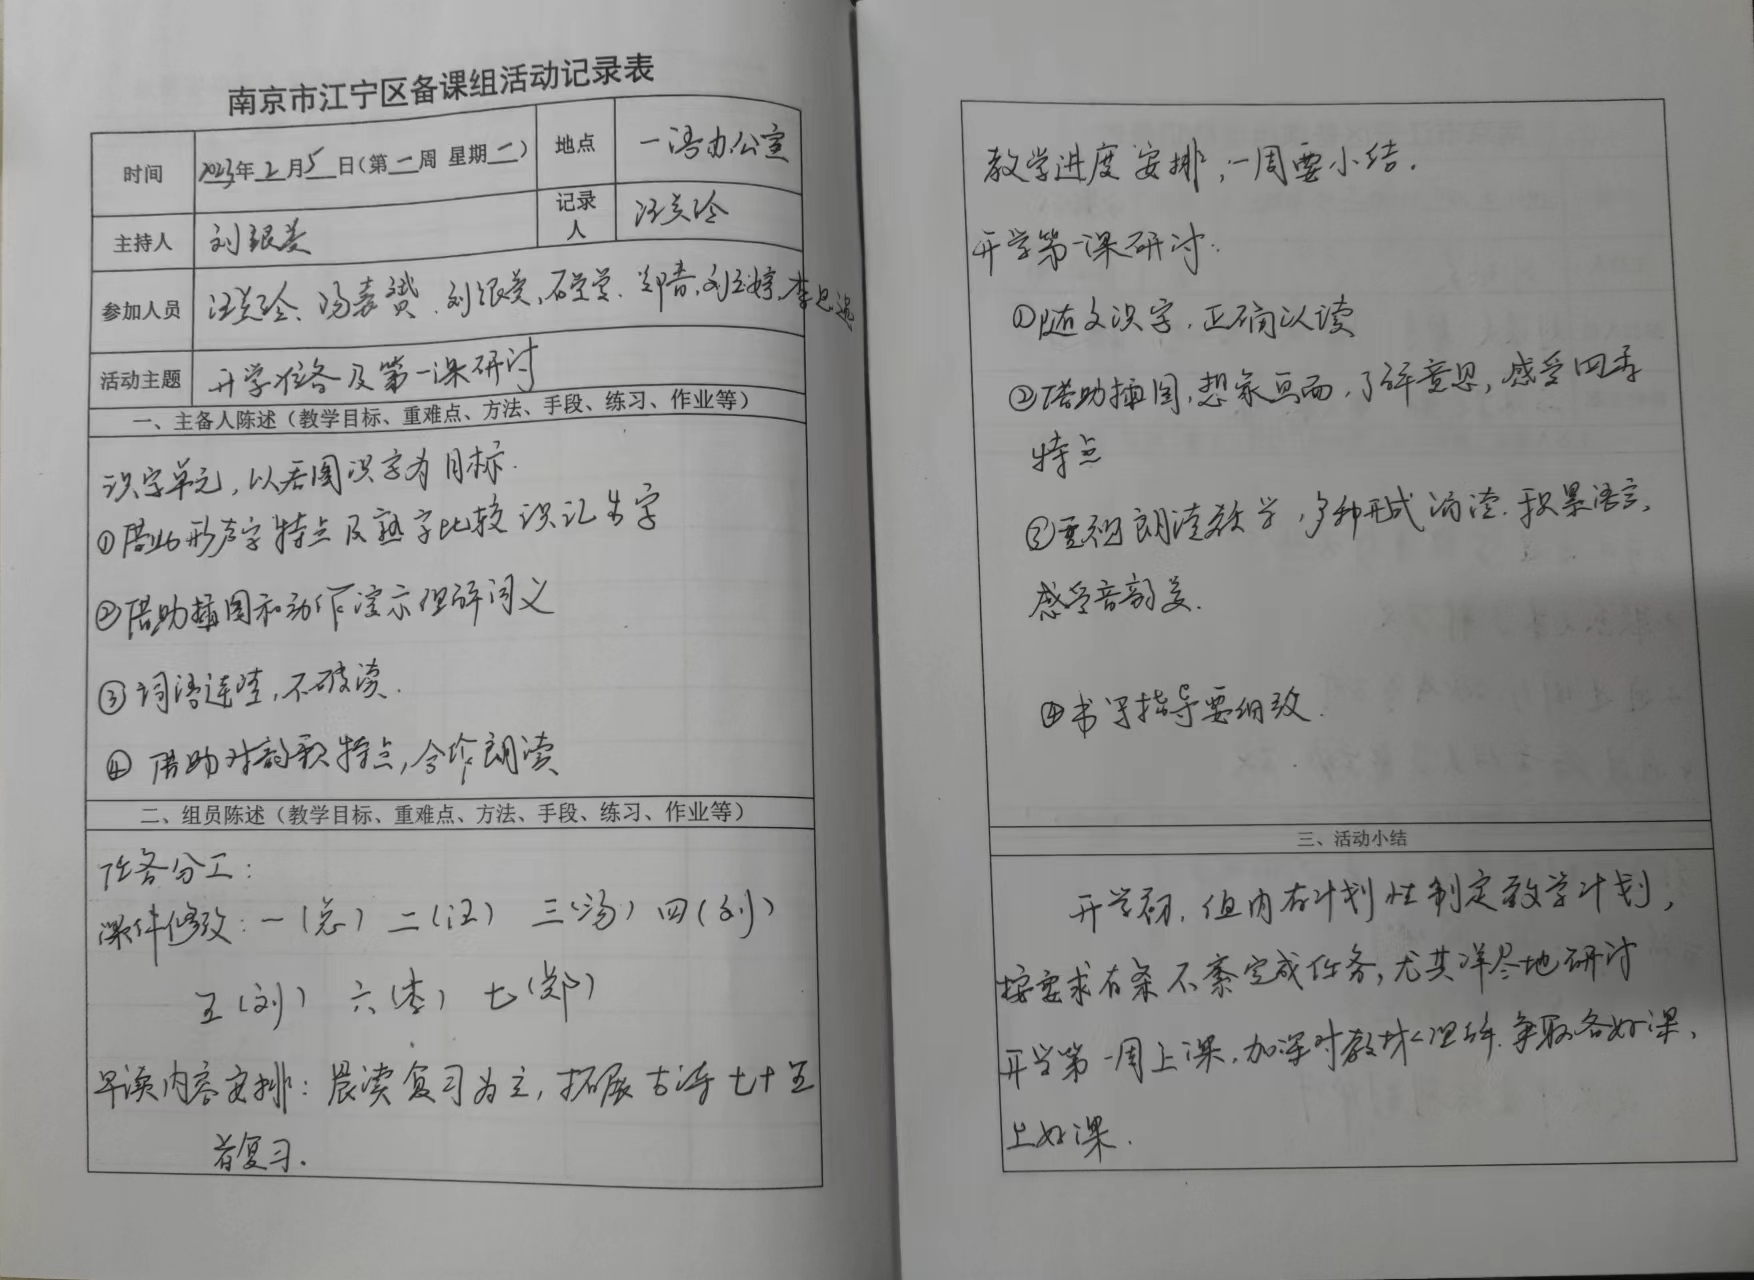 南京市江宁区备课组活动记录表
时间 2023年2月5日(第二周 星期二) 地点 一语办公室
主持人 刘银美 记录人 汪芸玲
参加人员 汪芸玲、汤嘉赟、刘银美、石莹莹、郑香、刘玉婷、李思远
活动主题 开学准备及第一课研讨
一、主备人陈述(教学目标、重难点、方法、手段、练习、作业等)
识字单元,以看图识字为目标.
①借助形声字特点及熟字比较识记生字
②借助插图和动作演示理解词义
③词语连读,不破读.
④借助对韵歌特点,合作朗读
二、组员陈述(教学目标、重难点、方法、手段、练习、作业等)
任务分工:
课件修改:一(总) 二(汪) 三(汤) 四(刘)
五(刘) 六(李) 七(郑)
早读内容安排:晨读复习为主,拓展古诗七十五
首复习.
教学进度安排,一周要小结.
开学第一课研讨:
①随文识字,正确认读
②借助插图,想象画面,了解意思,感受四季
特点
③重视朗读教学,多种形式诵读.积累语言,
感受音韵美.
④书写指导要细致.
三、活动小结
开学初,组内有计划性制定教学计划,
按要求有条不紊完成任务,尤其详尽地研讨
开学第一周上课,加深对教材理解.争取备好课、
上好课.